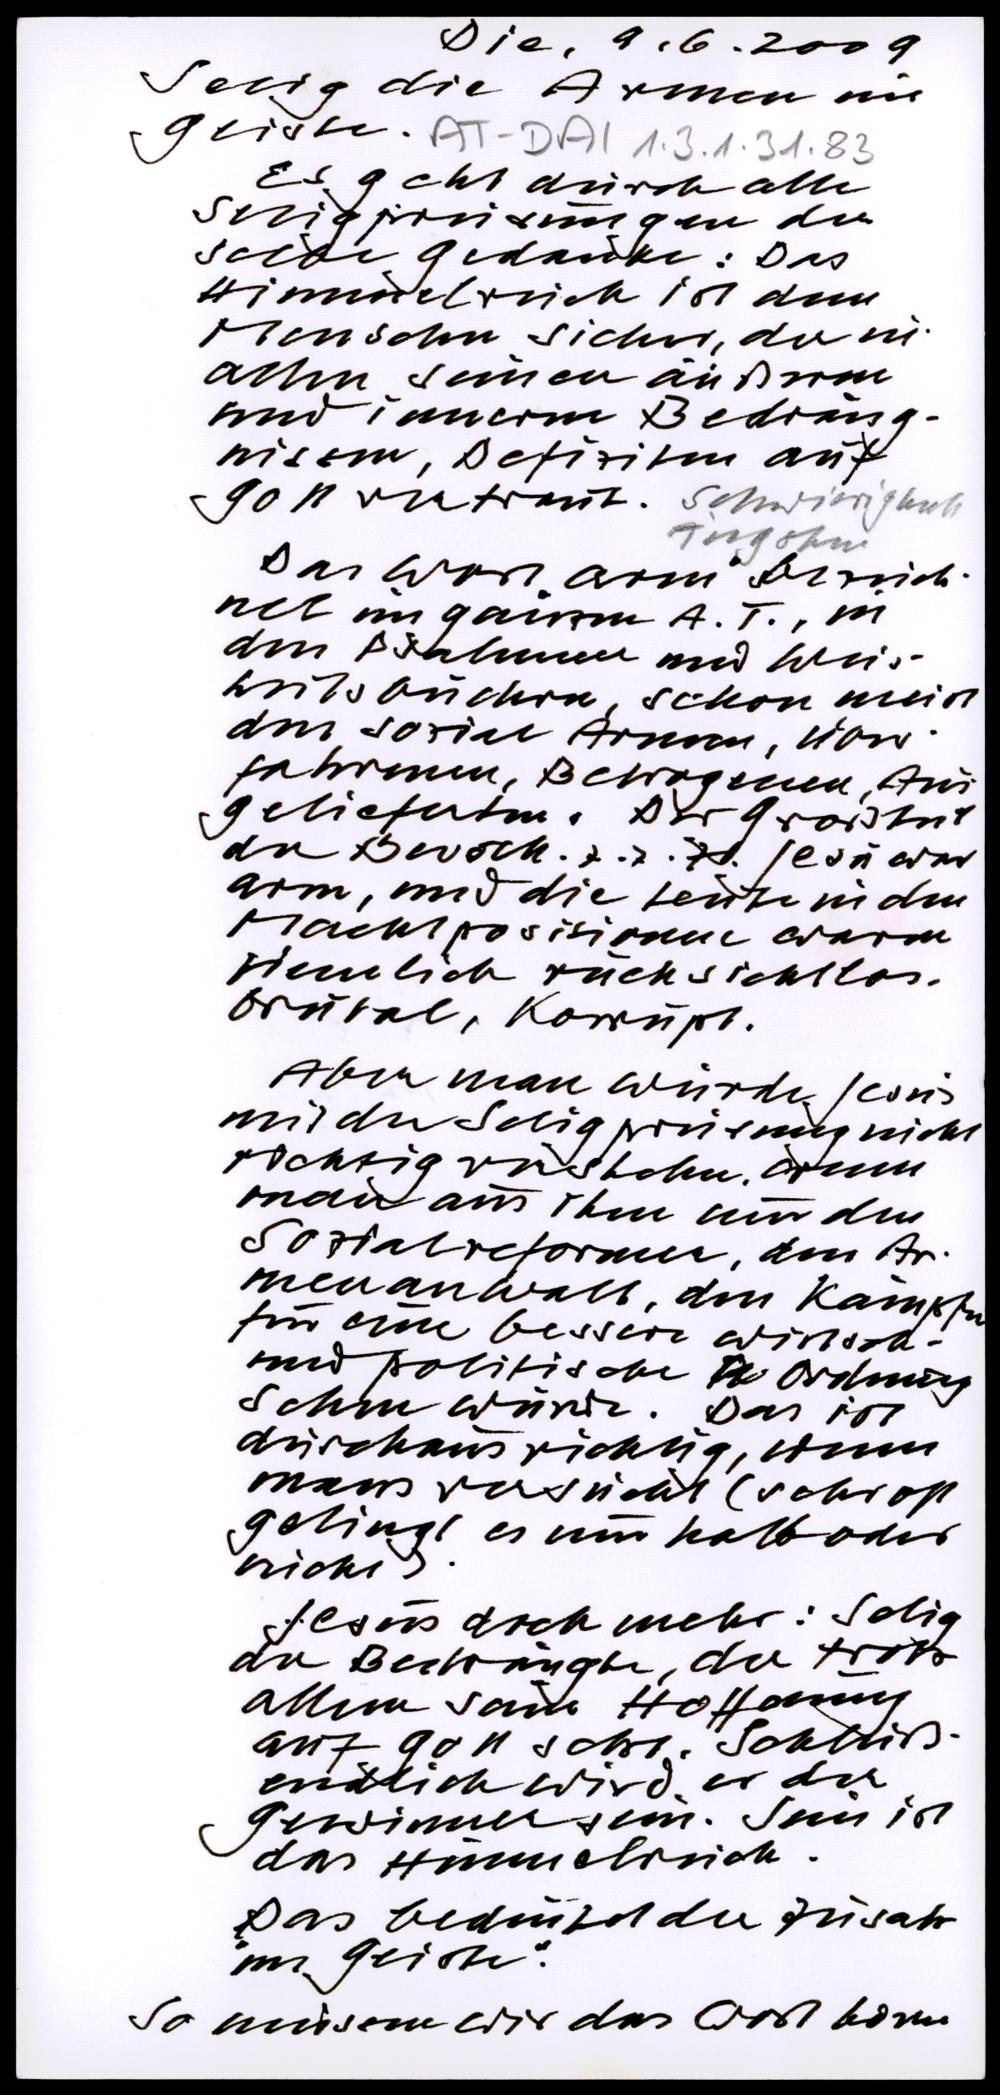 Die, 9.6.2009
Selig die Armen im
Geiste. AT-DAI 1.3.1.31.83
Es geht durch alle
Seligpreisungen der
selbe Gedanke: Das
Himmelreich ist dem
Menschen sicher, der in
allen seinen äußeren
und inneren Bedräng-
nissen, Defiziten auf
Gott vertraut. Schwierigkeit
Das Wort "arm" bezeich-
net im ganzen A.T., in
den Psalmen und Weis-
heitsbüchern, schon meist
den sozial Armen, über-
fahrenen, Betrogenen, Aus
gelieferten. Der Großteil
der Bevölk. z. Z. Jesu war
arm, und die Leute in den
Machtpositionen waren
ziemlich rücksichtslos.
brutal, korrupt.
Aber man würde Jesus
mit der Seligpreisung nicht
richtig verstehen, wenn
man aus ihm nur den
Sozialreformer, den Ar-
menanwalt, den Kämpfer
für eine bessere wirtsch-
und politische Ordnung
sehen würde. Das ist
durchaus richtig, wenn
mans versucht (sehr oft
gelingt es nur halb oder
nicht).
Jesus doch mehr: Selig
der Bedrängte, der trotz
allem seine Hoffnung
auf Gott setzt. Schluß-
endlich wird er der
Gewinner sein. Sein ist
das Himmelreich.
Das bedeutet der Zusatz
"im Geiste".
So müssen wir das Wort hören